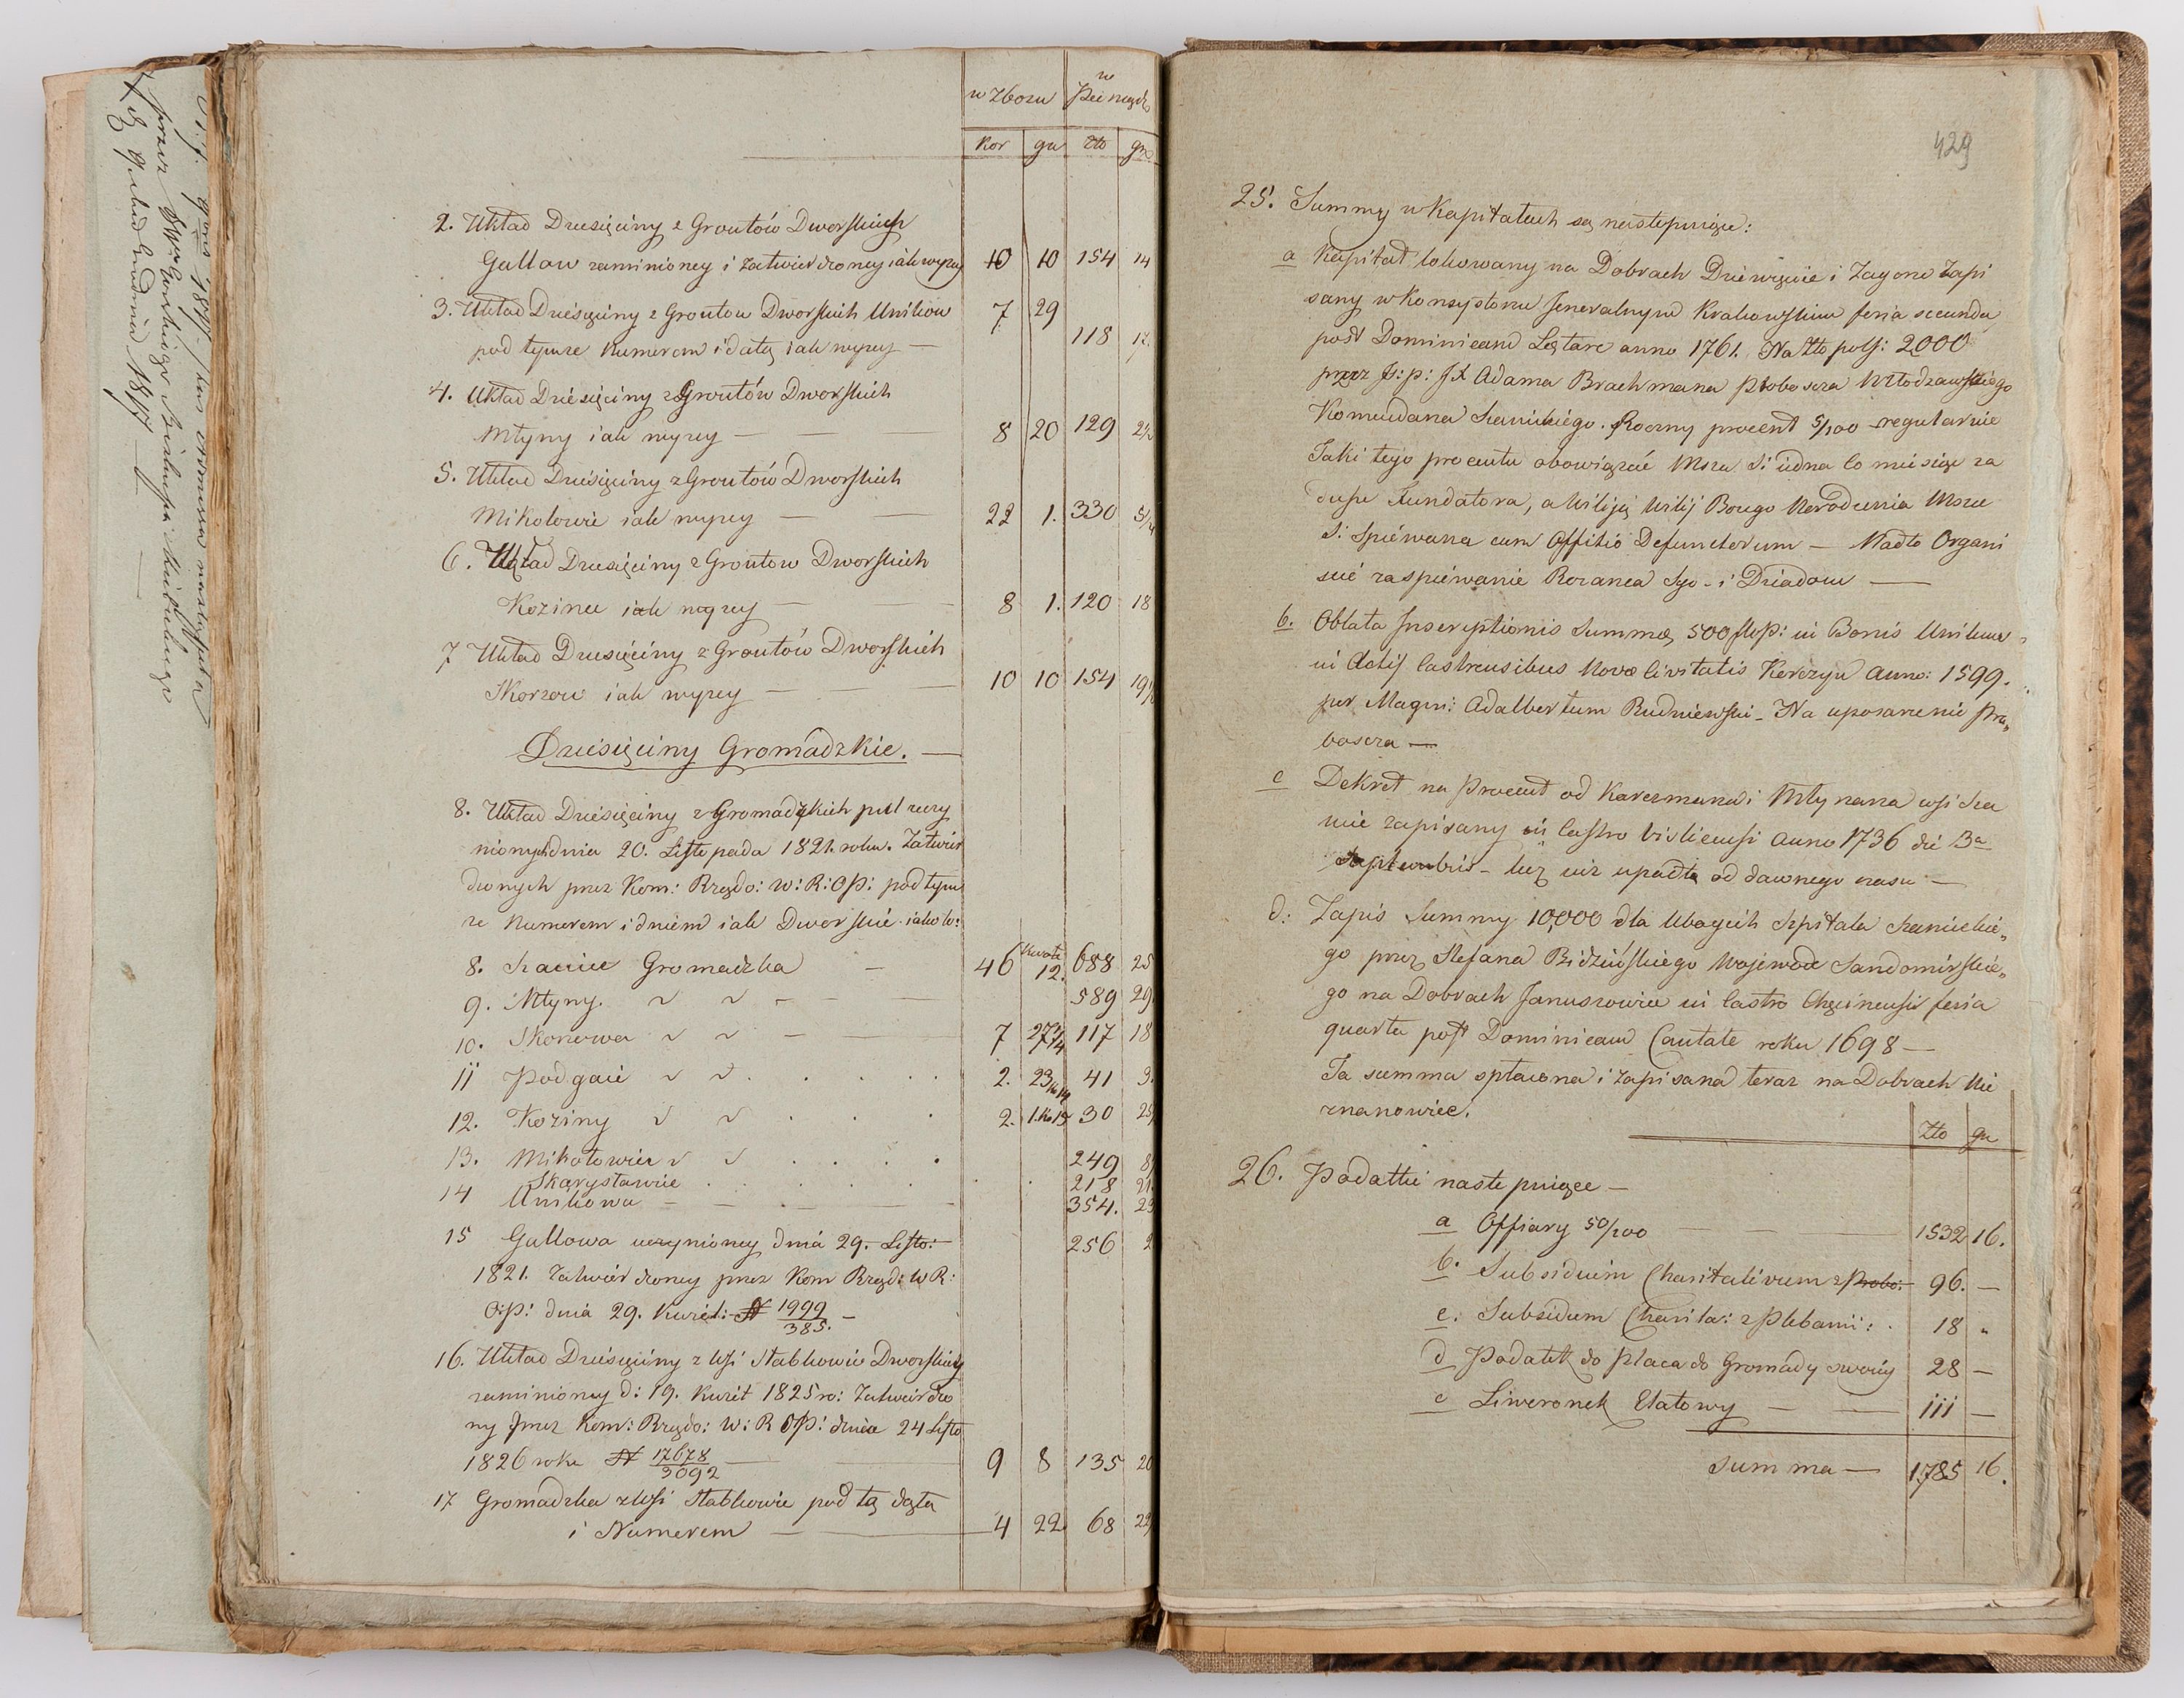 w Zboru w Pieniądz
Kor gr zło gr
2. Układ Dziesięciny z Grontów Dworskich
Gallow zaminioney i zatwierdzoney iak wyzey 10 10 154 14
3. Układ Dziesięciny z Grontow Dworskich Uników 7 29
pod tymze Numerem i datą iak wyzey — 118 17
4. Układ Dziesięciny z Grontów Dworskich
Młyny iak wyzey — 8 20 129
5. Układ Dziesięciny z Grontów Dworskich
Mikołowie iak wyzey — 22 1. 330
6. Układ Dziesięciny z Grontow Dworskich
Kozinee iak wyzey — 8 1. 120 18
7 Układ Dziesięciny z Grontów Dworskich
Skorzow iak wyzey — 10 10 154
Dziesięciny Gromadzkie. —
8. Układ Dziesięciny z Gromadzkich
dnia 20. Listopada 1821. roku. Zatwier
dzonych przez Kom: Rządo: W: R: O P: pod tym
ze Numerem i dniem iak Dworskie iako to:
8. Gromadzka — 46 12. 688 25
9. Młyny. — 589 29
10. Skorzowa — 7 27 1/4 117 18
11 Podgaie 2. 23 41 3.
12. Koziny 2. 1. 30 25
13. Mikołowice 249 8
Skarysławice 218 21
14 Unikowa — 354. 23
15 Gallowa uczynioney dnia 29. Listo: 256 2
1821. Zatwierdzoney przez Kom Rząd: W R:
O: P: dnia 29. Kwiet: N 1999/385. —
16. Układ Dziesięciny z Wsi Stabkowie Dworskiey
zaminioney d: 19. Kwiet 1825 ro: Zatwierdzo
ny przez Kom: Rządo: W: R O P: dnia 24 Listo
1826 roku N 17678/3092 — 9 8 135 20
17 Gromadzka z Wsi Stabkowie pod tą datą
i Numerem — 4 22 68 22
429
25. Summy w Kapitałach są następuiące:
a Kapitał lokowany na Dobrach Dziewięcie i Zagone Zapi
sany w Konsystorzu Jeneralnym Krakowskim feria secunda
post Dominicam Lętare anno 1761. Na Zło pols: 2000
przez Ś: p: JX Adama Brachmana Proboszcza Włodzawskiego
Komendana Szanieckiego. Roczny procent 5/100 regularnie
Jaki tego procentu obowiązek Msza S: iedna co miesiąc za
duszę Fundatora, a Wiliją Wilij Bożego Narodzenia Msza
S: spiéwana cum Offitio Defunctorum — Nadto Organi
scie za spiéwanie Rozanca Sgo – i Dziadom —
b. Oblata Inscryptionis Summæ 500 flop: in Bonis Unikow
in Actis Castrensibus Novæ Civitatis Korczyn anno: 1599.
per Magni: Adalbertum Rudniewski – Na uposazenie Pro„
boszcza —
c Dekret na Procent od Karczmarza i Młynarza wsi Sza
niec zapisany in Castro Visliciensi anno 1736 die 3a
Septembris – lecz iuz upadła od dawnego czasu —
d: Zapis Summy 10,000 dla Ubogich Szpitala Szanieckie„
go przez Stefana Bidzińskiego Wojewode Sandomirskie„
go na Dobrach Januszowice in Castro Chęcinensi feria
quarta post Dominicam Cantate roku 1698 —
Ta summa spłacona i zapisana teraz na Dobrach Nie
znanowice.
Zło gr
26. Podatki nastepuiące —
a Offiary 50/100 — 1532 16.
b. Subsidium Charitativum z Probo: 96. —
c. Subsidum Charita: z Plebanii: 18 „
d Podatek do Placa do Gromady swoiey 28 —
e Liweronek Etatowy — 111 —
Summa — 1785 16.